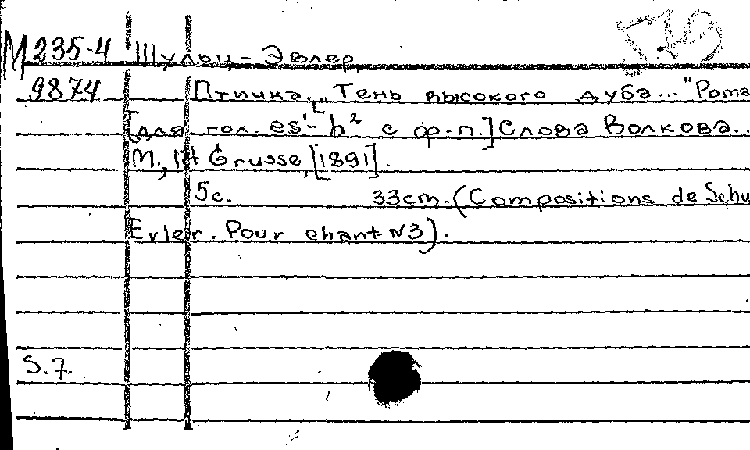 М 235-4 Шульц-Эвлер
9874 Птичка. ["Тень высокого дуба..." Рома
[для гол. es'-h² с ф-п.] Слова Волкова..
М., Grusse, [1891].
5с. 33cm. (Compositions de Schu
Evler. Pour chant N3).
S.7.